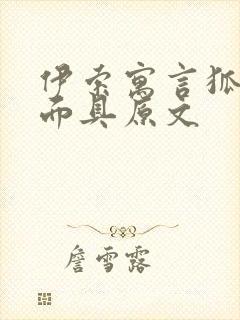 伊索寓言狐
而具原文
詹雪露